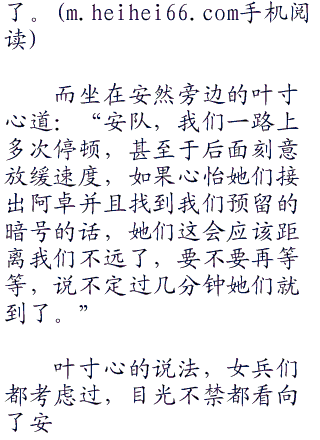 了。(m.heihei66.com手机阅
读)
而坐在安然旁边的叶寸
心道：“安队，我们一路上
多次停顿，甚至于后面刻意
放缓速度，如果心怡她们接
出阿卓并且找到我们预留的
暗号的话，她们这会应该距
离我们不远了，要不要再等
等，说不定过几分钟她们就
到了。”
叶寸心的说法，女兵们
都考虑过，目光不禁都看向
了安